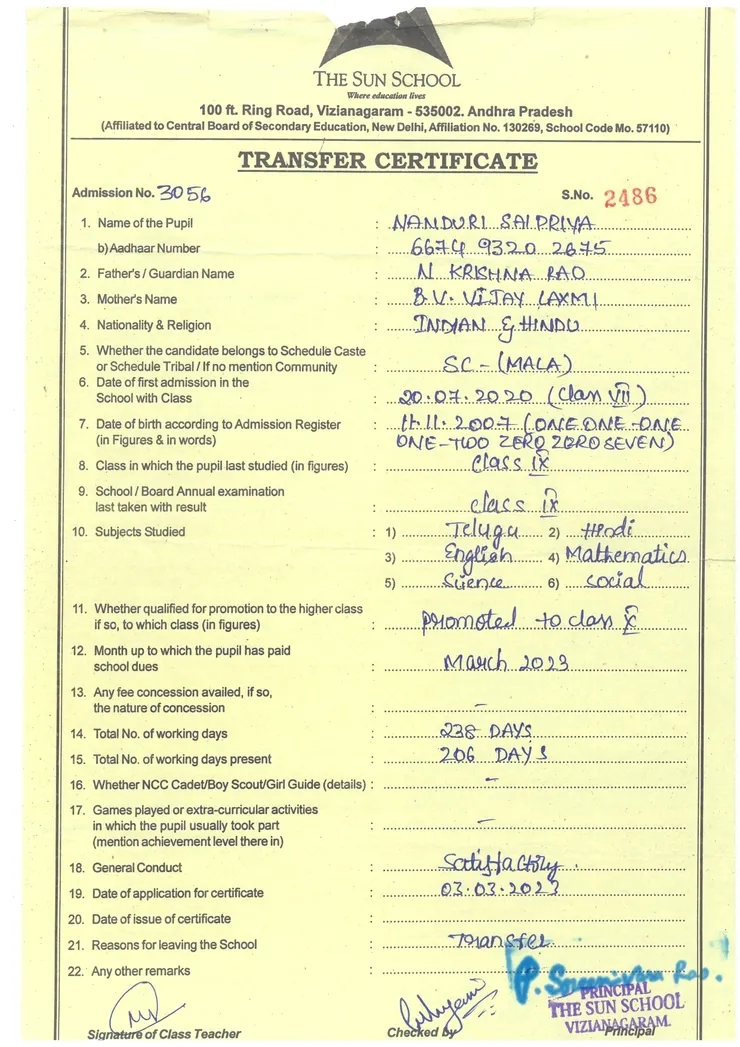 THE SUN SCHOOL
Where education lives
100 ft. Ring Road, Vizianagaram - 535002. Andhra Pradesh
(Affiliated to Central Board of Secondary Education, New Delhi, Affiliation No. 130269, School Code Mo. 57110)
TRANSFER CERTIFICATE
Admission No. 3056 S.No. 2486
1. Name of the Pupil : NANDURI SAI PRIYA
b) Aadhaar Number : 6674 9320 2675
2. Father's / Guardian Name : N KRISHNA RAO
3. Mother's Name : B.V. VIJAY LAXMI
4. Nationality & Religion : INDIAN & HINDU
5. Whether the candidate belongs to Schedule Caste
or Schedule Tribal / If no mention Community : SC - (MALA)
6. Date of first admission in the
School with Class : 20.07.2020 (Class VII)
7. Date of birth according to Admission Register : 11.11.2007 (ONE ONE-ONE
(in Figures & in words) ONE-TWO ZERO ZERO SEVEN)
8. Class in which the pupil last studied (in figures) : Class IX
9. School / Board Annual examination
last taken with result : class IX
10. Subjects Studied : 1) Telugu 2) Hindi
3) English 4) Mathematics
5) Science 6) Social
11. Whether qualified for promotion to the higher class
if so, to which class (in figures) : promoted to class X
12. Month up to which the pupil has paid
school dues : March 2023
13. Any fee concession availed, if so,
the nature of concession : -
14. Total No. of working days : 238 DAYS
15. Total No. of working days present : 206 DAYS
16. Whether NCC Cadet/Boy Scout/Girl Guide (details) : -
17. Games played or extra-curricular activities
in which the pupil usually took part : -
(mention achievement level there in)
18. General Conduct : Satisfactory.
19. Date of application for certificate : 03.03.2023
20. Date of issue of certificate :
21. Reasons for leaving the School : Transfer
22. Any other remarks :
P. Srinivasa Rao.
PRINCIPAL
THE SUN SCHOOL
VIZIANAGARAM.
Signature of Class Teacher Checked by Principal